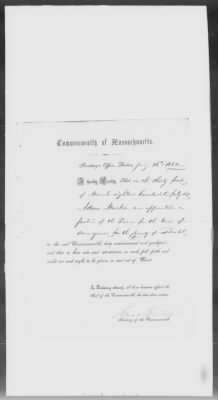 Commonwealth of Massachusetts.
Secretary's Office, Boston, July 26th
I hereby Certify, That on the thirty first
of March eighteen hundred
was appointed a
Justice of the Peace for the term of
seven years for the County of
in the said Commonwealth, duly commissioned and qualified;
and that to his acts and attestations, as such, full faith and
credit are and ought to be given, in and out of Court.
In Testimony whereof, I have hereunto affixed the
Seal of the Commonwealth, the date above written.
Secretary of the Commonwealth.